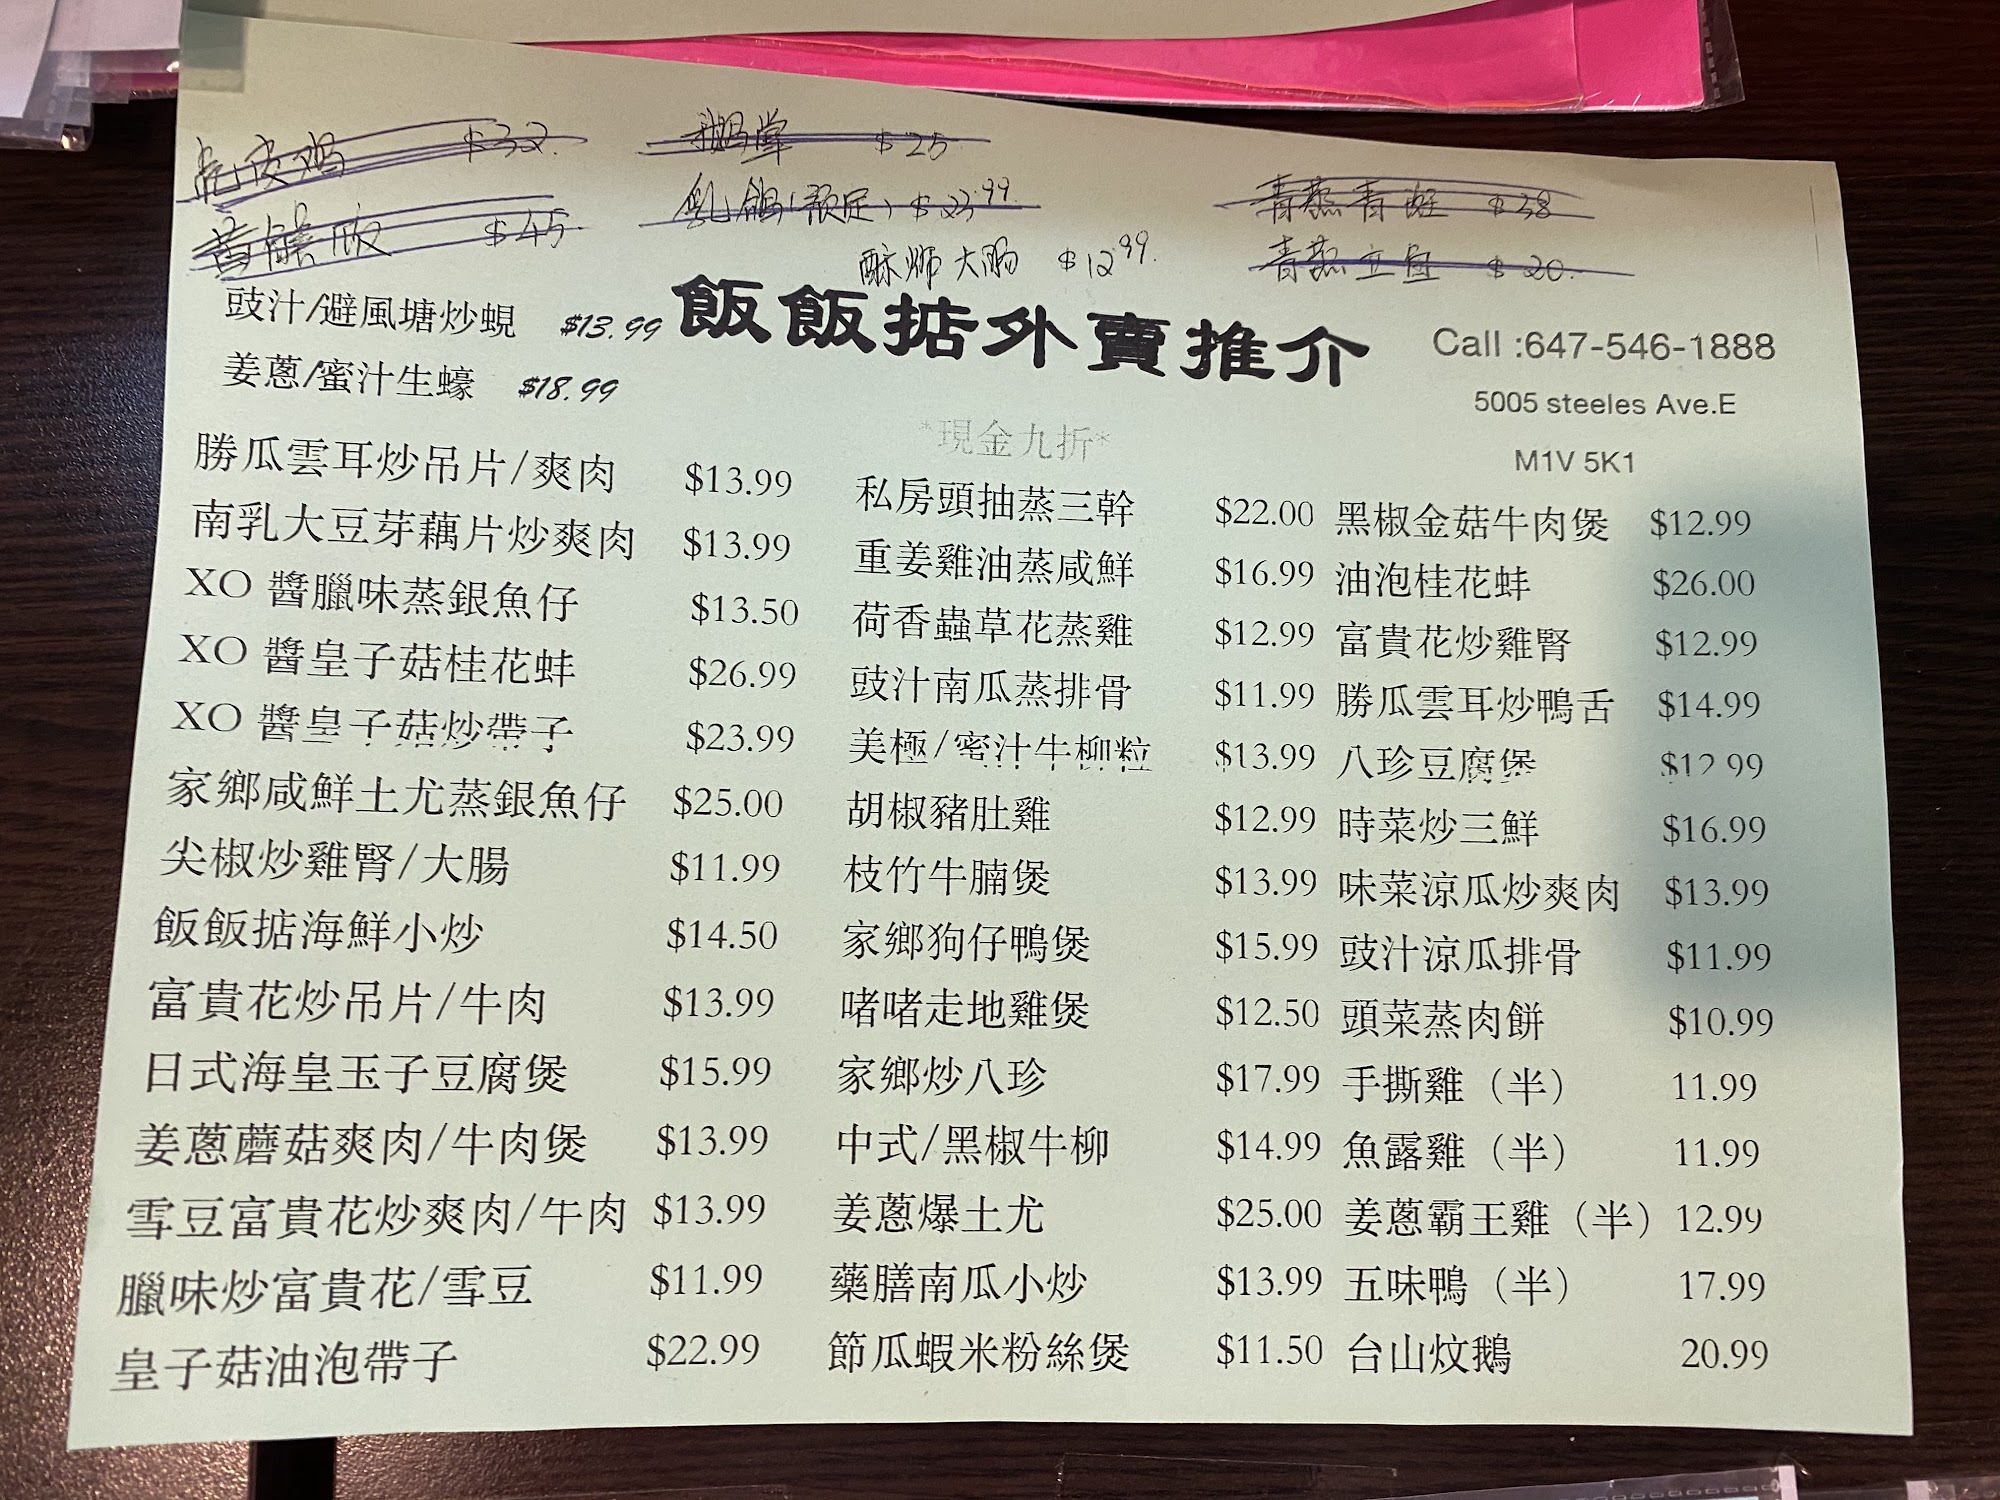 $32
$25
$45
乳鴿(預定) $23.99
$38
酥炸大腸 $12.99
$20
豉汁/避風塘炒蜆 $13.99
姜蔥/蜜汁生蠔 $18.99
飯飯掂外賣推介
Call :647-546-1888
5005 steeles Ave.E
M1V 5K1
*現金九折*
勝瓜雲耳炒吊片/爽肉 $13.99
南乳大豆芽藕片炒爽肉 $13.99
XO 醬臘味蒸銀魚仔 $13.50
XO 醬皇子菇桂花蚌 $26.99
XO 醬皇子菇炒帶子 $23.99
家鄉咸鮮土尤蒸銀魚仔 $25.00
尖椒炒雞腎/大腸 $11.99
飯飯掂海鮮小炒 $14.50
富貴花炒吊片/牛肉 $13.99
日式海皇玉子豆腐煲 $15.99
姜蔥蘑菇爽肉/牛肉煲 $13.99
雪豆富貴花炒爽肉/牛肉 $13.99
臘味炒富貴花/雪豆 $11.99
皇子菇油泡帶子 $22.99
私房頭抽蒸三幹 $22.00
重姜雞油蒸咸鮮 $16.99
荷香蟲草花蒸雞 $12.99
豉汁南瓜蒸排骨 $11.99
美極/蜜汁牛柳粒 $13.99
胡椒豬肚雞 $12.99
枝竹牛腩煲 $13.99
家鄉狗仔鴨煲 $15.99
啫啫走地雞煲 $12.50
家鄉炒八珍 $17.99
中式/黑椒牛柳 $14.99
姜蔥爆土尤 $25.00
藥膳南瓜小炒 $13.99
節瓜蝦米粉絲煲 $11.50
黑椒金菇牛肉煲 $12.99
油泡桂花蚌 $26.00
富貴花炒雞腎 $12.99
勝瓜雲耳炒鴨舌 $14.99
八珍豆腐煲 $12.99
時菜炒三鮮 $16.99
味菜涼瓜炒爽肉 $13.99
豉汁涼瓜排骨 $11.99
頭菜蒸肉餅 $10.99
手撕雞（半） 11.99
魚露雞（半） 11.99
姜蔥霸王雞（半） 12.99
五味鴨（半） 17.99
台山炆鵝 20.99